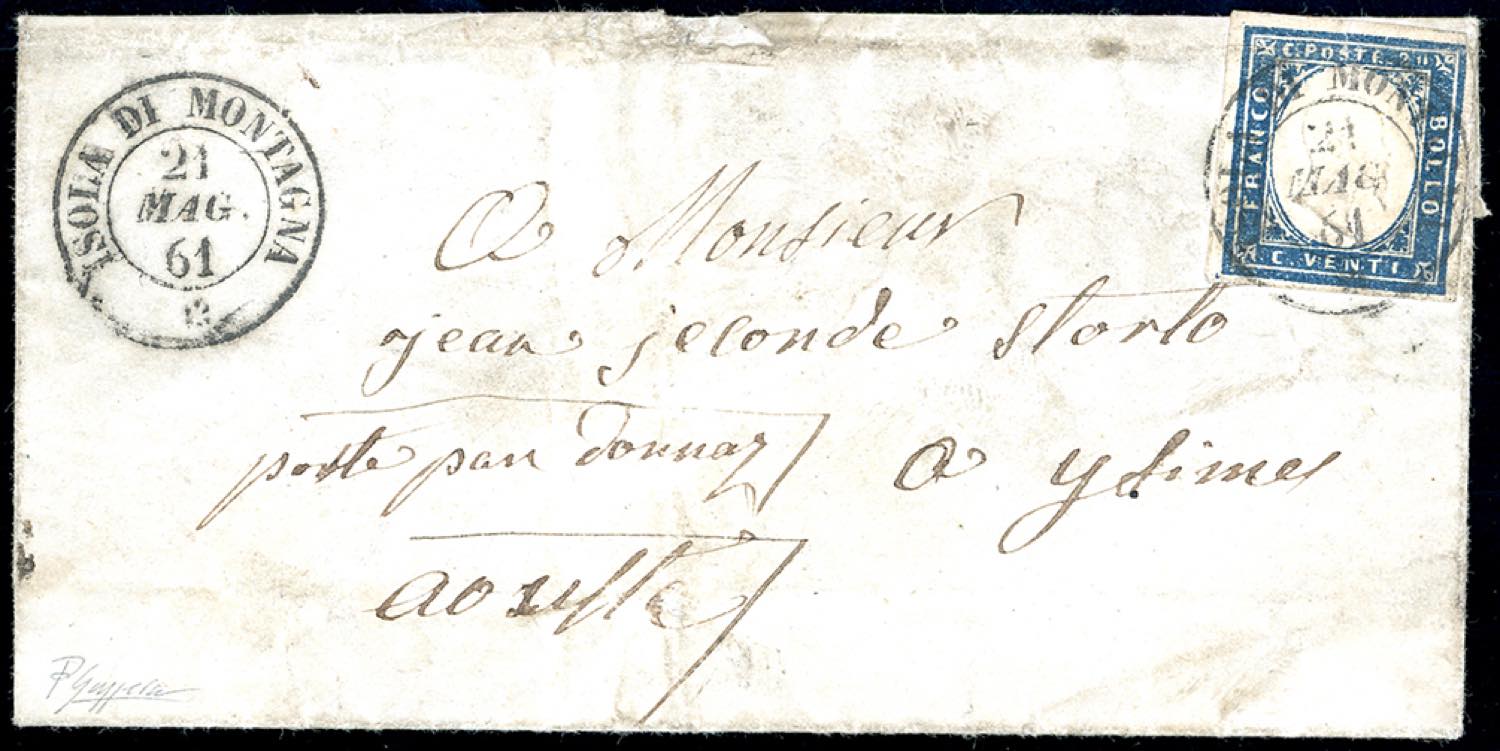 ISOLA DI MONTAGNA
21
MAG.
61
C. POSTE 20
FRANCO
BOLLO
C. VENTI
MON
21
MAG
61
A Monsieur
jean seconde storto
poste par donnaz
A ysimes
aouste